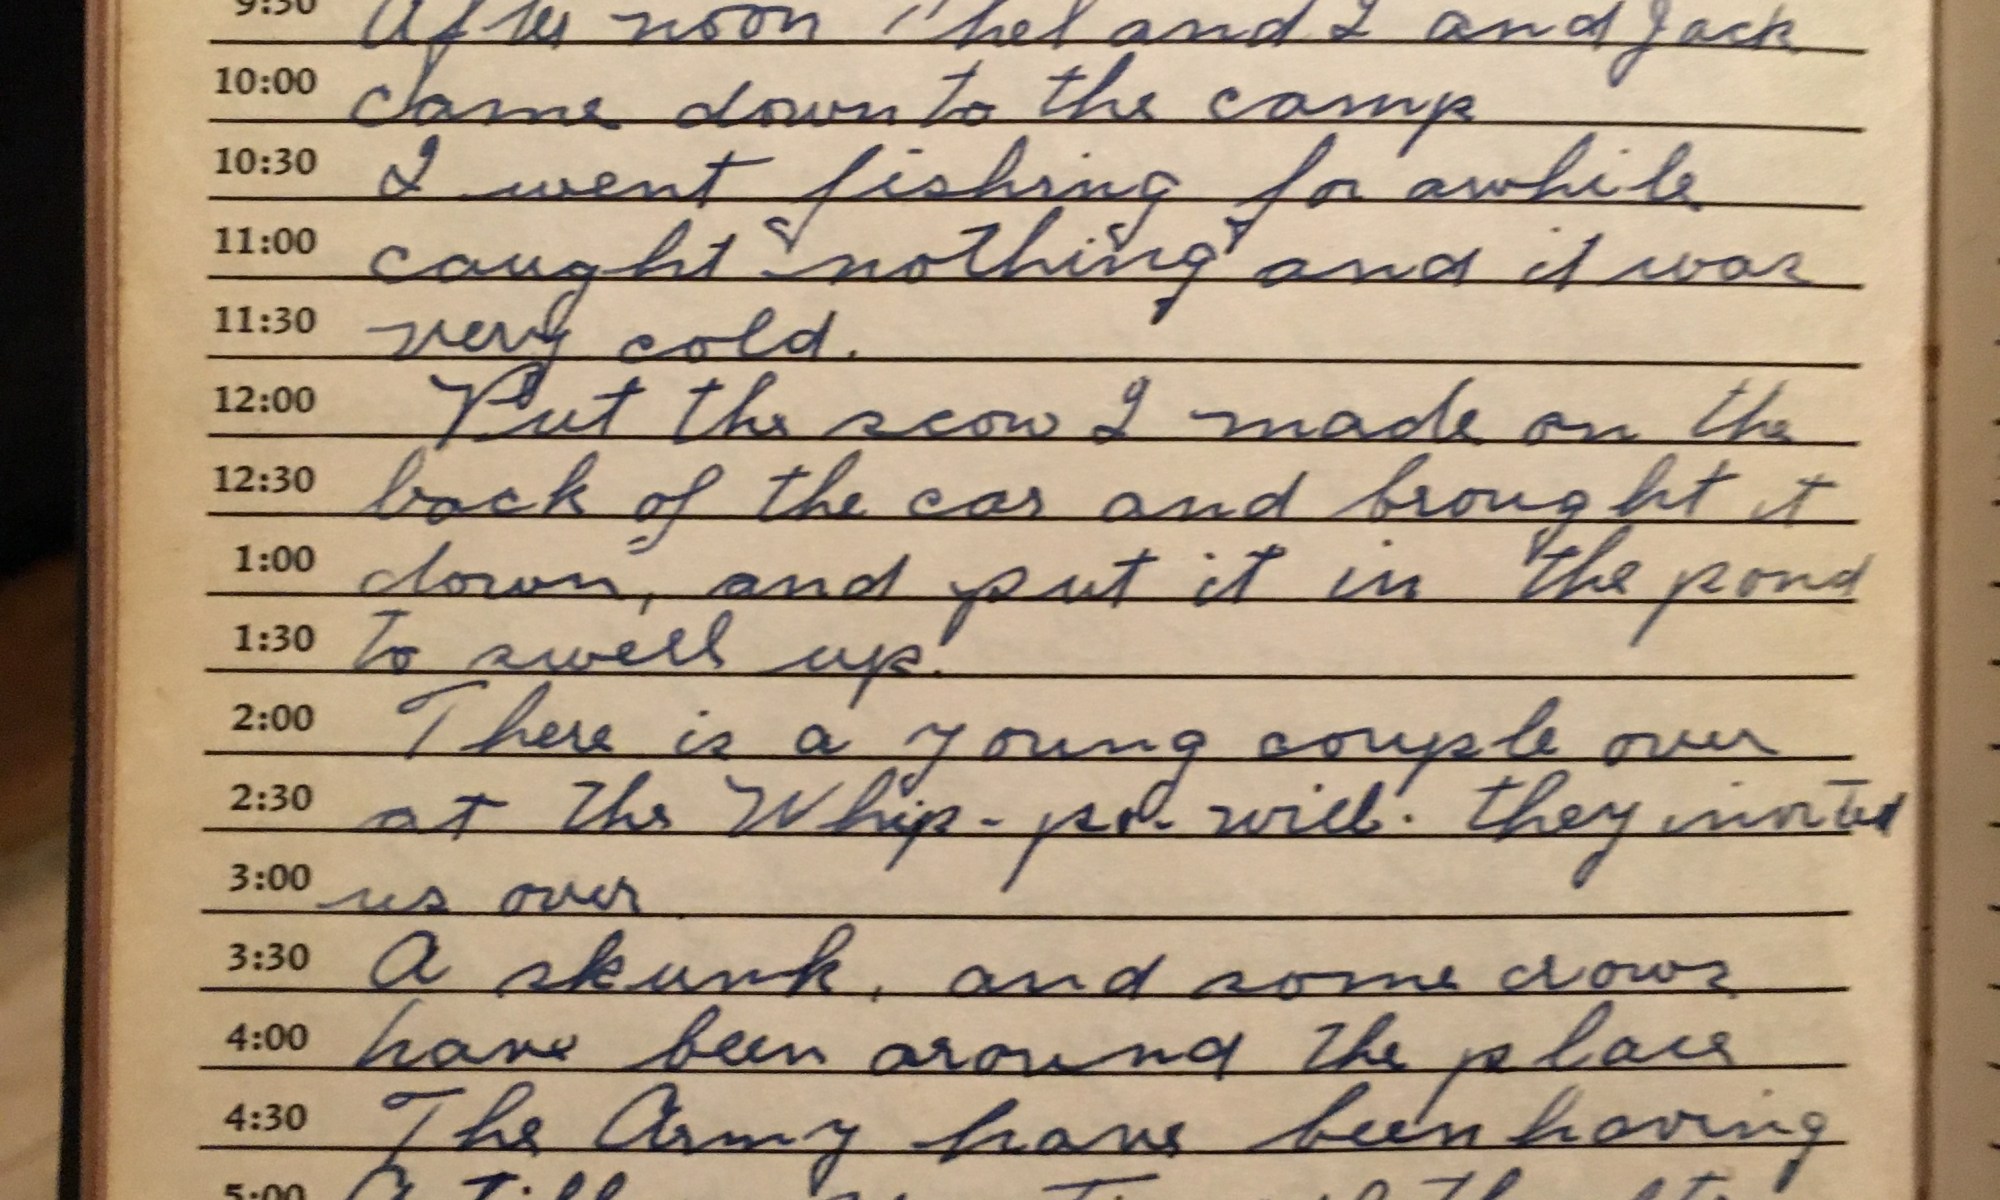 9:30 After noon Thel and I and Jack
10:00 came down to the camp
10:30 I went fishing for awhile
11:00 caught "nothing" and it was
11:30 very cold.
12:00 Put the scow I made on the
12:30 back of the car and brought it
1:00 down, and put it in the pond
1:30 to swell up.
2:00 There is a young couple over
2:30 at the Whip-po-will. they invited
3:00 us over
3:30 A skunk, and some crows
4:00 have been around the place
4:30 The Army have been having
5:00